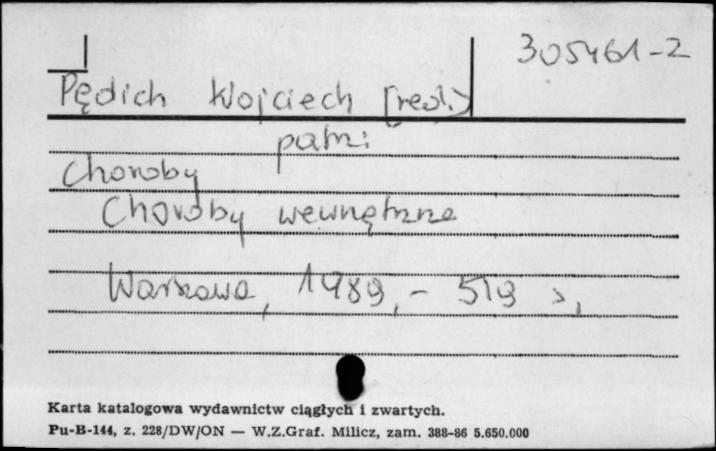 305461-2
Pędich Wojciech [red.]
patrz
Choroby
Choroby wewnętrzne
Warszawa, 1989, - 519 s,
Karta katalogowa wydawnictw ciągłych i zwartych.
Pu-B-144, z. 228/DW/ON — W.Z.Graf. Milicz, zam. 388-86 5.650.000